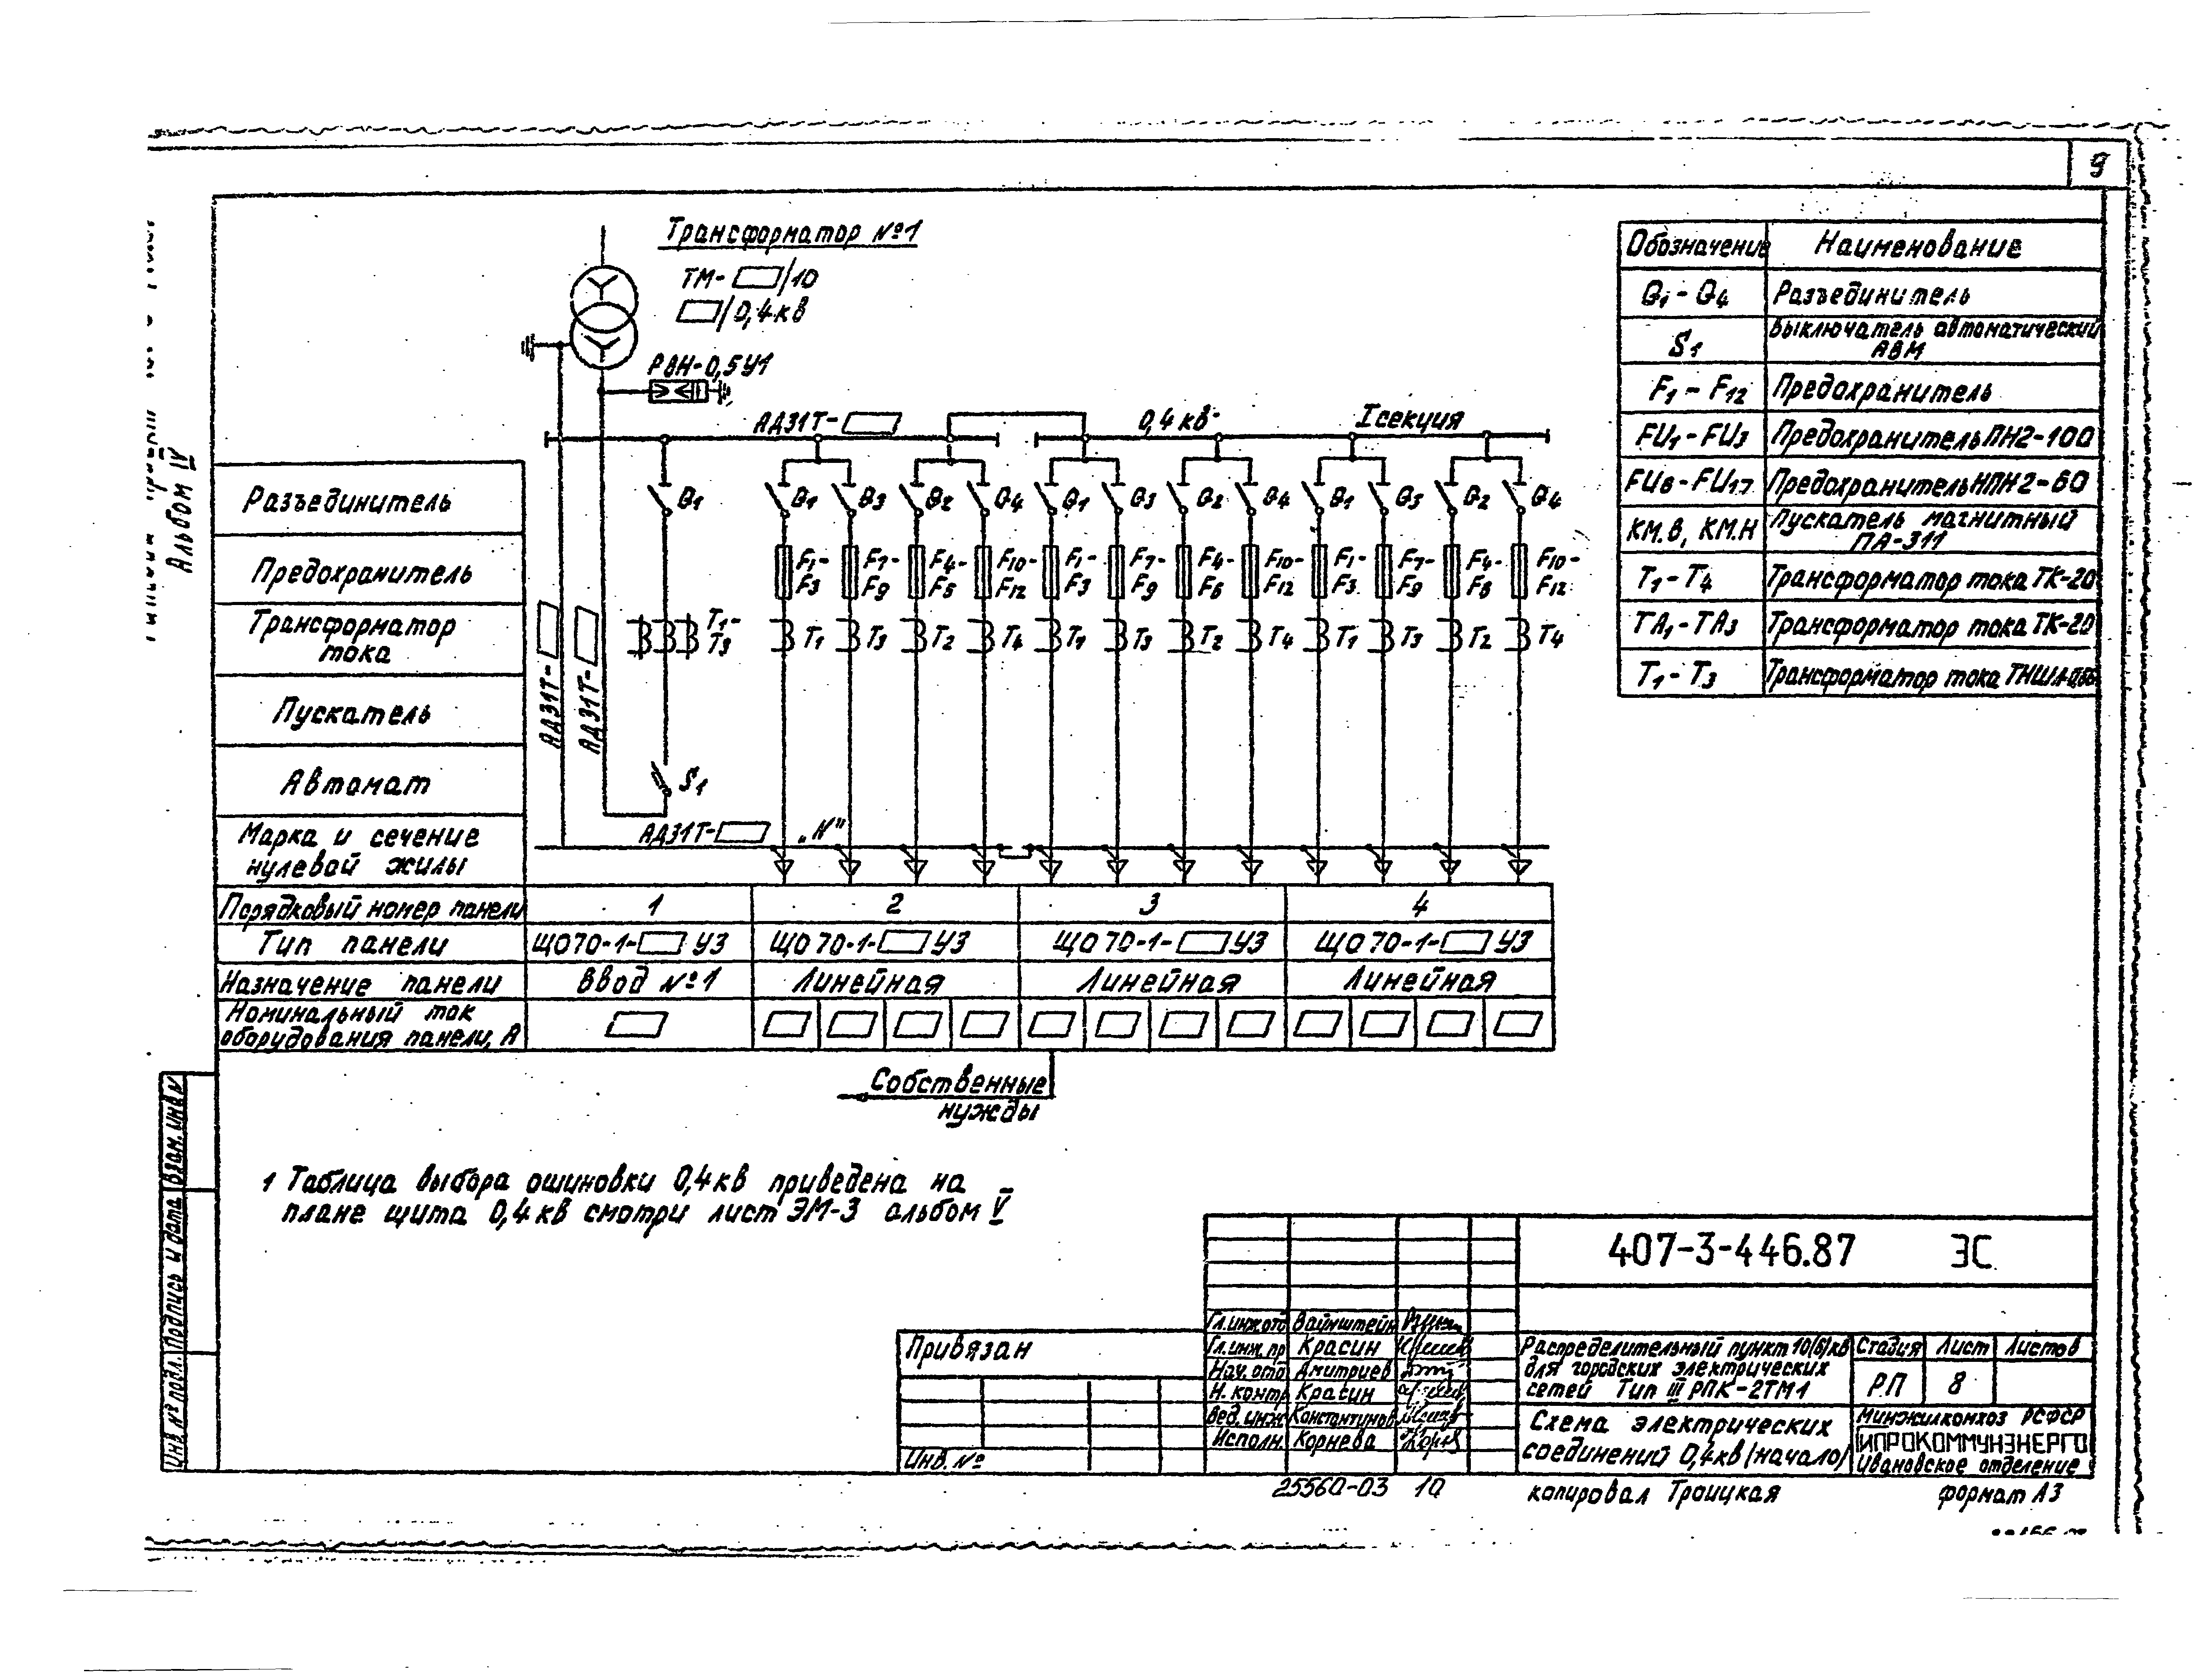 9
Альбом IV
Трансформатор №1
ТМ- /10
/0,4кв
РВН-0,5У1
АД31Т-
0,4 кв
I секция
Обозначение Наименование
Q1 - Q4 Разъединитель
S1 Выключатель автоматический АВМ
F1 - F12 Предохранитель
FU1 - FU3 Предохранитель ПН2-100
FU6 - FU17 Предохранитель НПН2-60
КМ.В, КМ.Н Пускатель магнитный ПА-311
T1 - T4 Трансформатор тока ТК-20
TA1 - TA3 Трансформатор тока ТК-20
T1 - T3 Трансформатор тока ТНШЛ-0,66
Разъединитель Q1 Q1 Q3 Q2 Q4 Q1 Q3 Q2 Q4 Q1 Q3 Q2 Q4
Предохранитель F1- F7- F4- F10- F1- F7- F4- F10- F1- F7- F4- F10-
F3 F9 F6 F12 F3 F9 F6 F12 F3 F9 F6 F12
Трансформатор T1- T1 T3 T2 T4 T1 T3 T2 T4 T1 T3 T2 T4
тока T3
Пускатель
АД31Т-
АД31Т-
Автомат S1
Марка и сечение АД31Т- „N"
нулевой жилы
Порядковый номер панели 1 2 3 4
Тип панели ЩО70-1- У3 ЩО70-1- У3 ЩО70-1- У3 ЩО70-1- У3
Назначение панели Ввод №1 Линейная Линейная Линейная
Номинальный ток
оборудования панели, А
Собственные
нужды
1 Таблица выбора ошиновки 0,4кв приведена на
плане щита 0,4кв смотри лист ЭМ-3 альбом V
Взам. инв N
Подпись и дата
Инв. № подл.
407-3-446.87 ЭС
Привязан
Инв. №
Гл.инж.отд Вайнштейн
Гл. инж. пр Красин
Нач. отд Дмитриев
Н. контр Красин
Вед. инж Константинов
Исполн. Корнева
Распределительный пункт 10(6)кв
для городских электрических
сетей Тип III РПК-2ТМ1
Стадия Лист Листов
РП 8
Схема электрических
соединений 0,4кв /начало/
Минжилкомхоз РСФСР
ГИПРОКОММУНЭНЕРГО
Ивановское отделение
25560-03 10
копировал Троицкая
формат А3